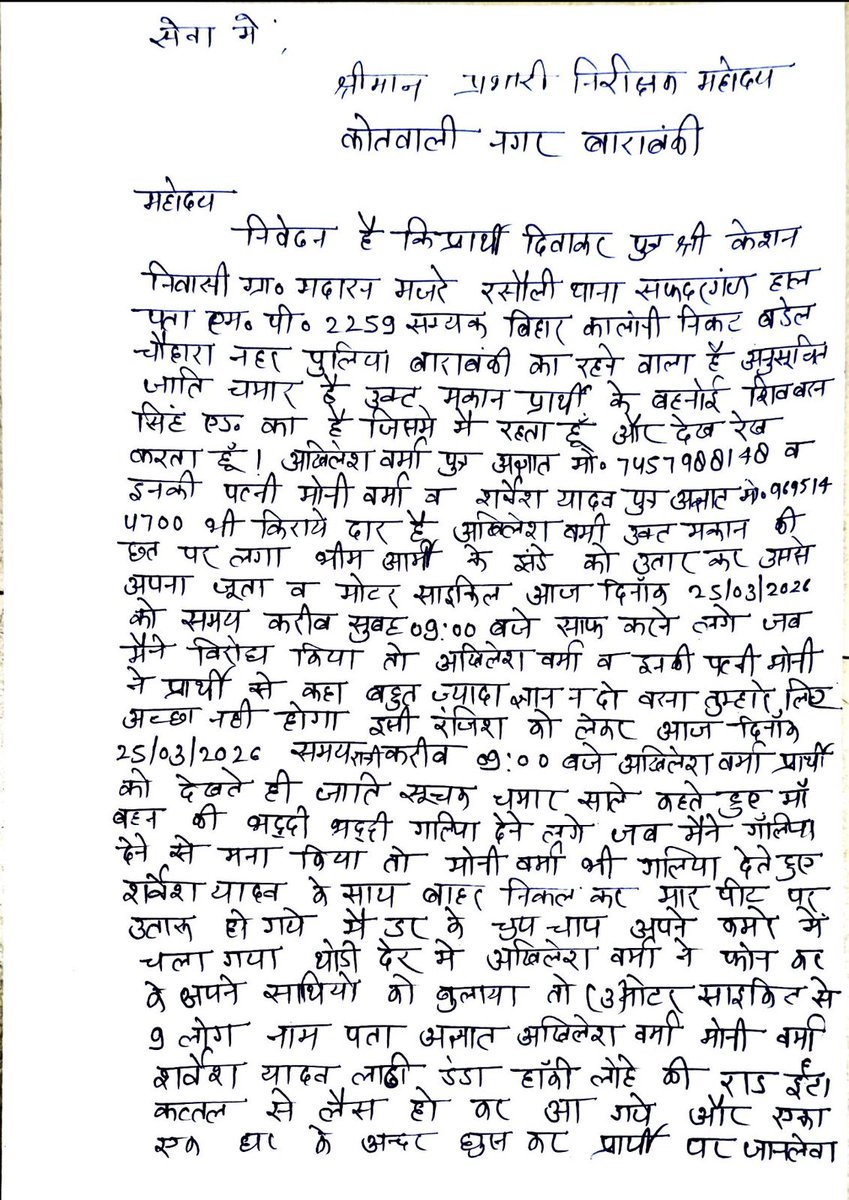 सेवा में,
श्रीमान प्रभारी निरीक्षक महोदय
कोतवाली नगर बाराबंकी
महोदय
निवेदन है कि प्रार्थी दिवाकर पुत्र श्री केशन
निवासी ग्रा० मदारन मजरे रसौली थाना सफदरगंज हाल
पता एम. पी. 2259 सम्यक विहार कालोनी निकट बडेल
चौहारा नहर पुलिया बाराबंकी का रहने वाला है अनुसूचित
जाति चमार है उक्त मकान प्रार्थी के बहनोई
सिंह एड. का है जिसमे मै रहता हूँ और देख रेख
करता हूँ। अखिलेश वर्मा पुत्र अज्ञात मो० 7457988148 व
इनकी पत्नी मोनी वर्मा व शर्वेश यादव पुत्र अज्ञात मो०969514
4700 भी किराये दार है अखिलेश वर्मा उक्त मकान की
छत पर लगा भीम आर्मी के झंडे को उतार कर उससे
अपना जूता व मोटर साइकिल आज दिनाँक 25/03/2026
को समय करीब सुबह 09:00 बजे साफ करने लगे जब
मैने विरोध किया तो अखिलेश वर्मा व इनकी पत्नी मोनी
ने प्रार्थी से कहा बहुत ज्यादा ज्ञान न दो वरना तुम्हारे लिए
अच्छा नही होगा इसी रंजिश को लेकर आज दिनाँक
25/03/2026 समय रात्री करीब 09:00 बजे अखिलेश वर्मा प्रार्थी
को देखते ही जाति सूचक चमार साले कहते हुए माँ
बहन की भद्दी भद्दी गलिया देने लगे जब मैने गाँलिया
देने से मना किया तो मोनी वर्मा भी गलिया देते हुए
शर्वेश यादव के साथ बाहर निकल कर मार पीट पर
उतारू हो गये मै डर के चुप चाप अपने कमरे में
चला गया थोडी देर मे अखिलेश वर्मा ने फोन कर
के अपने साथियो को बुलाया तो (3) मोटर साइकिल से
9 लोग नाम पता अज्ञात अखिलेश वर्मा मोनी वर्मा
शर्वेश यादव लाठी डंडा हॉकी लोहे की राड ईंटा
कत्तल से लैस हो कर आ गये और एका
एक घर के अन्दर घुस कर प्रार्थी पर जानलेवा